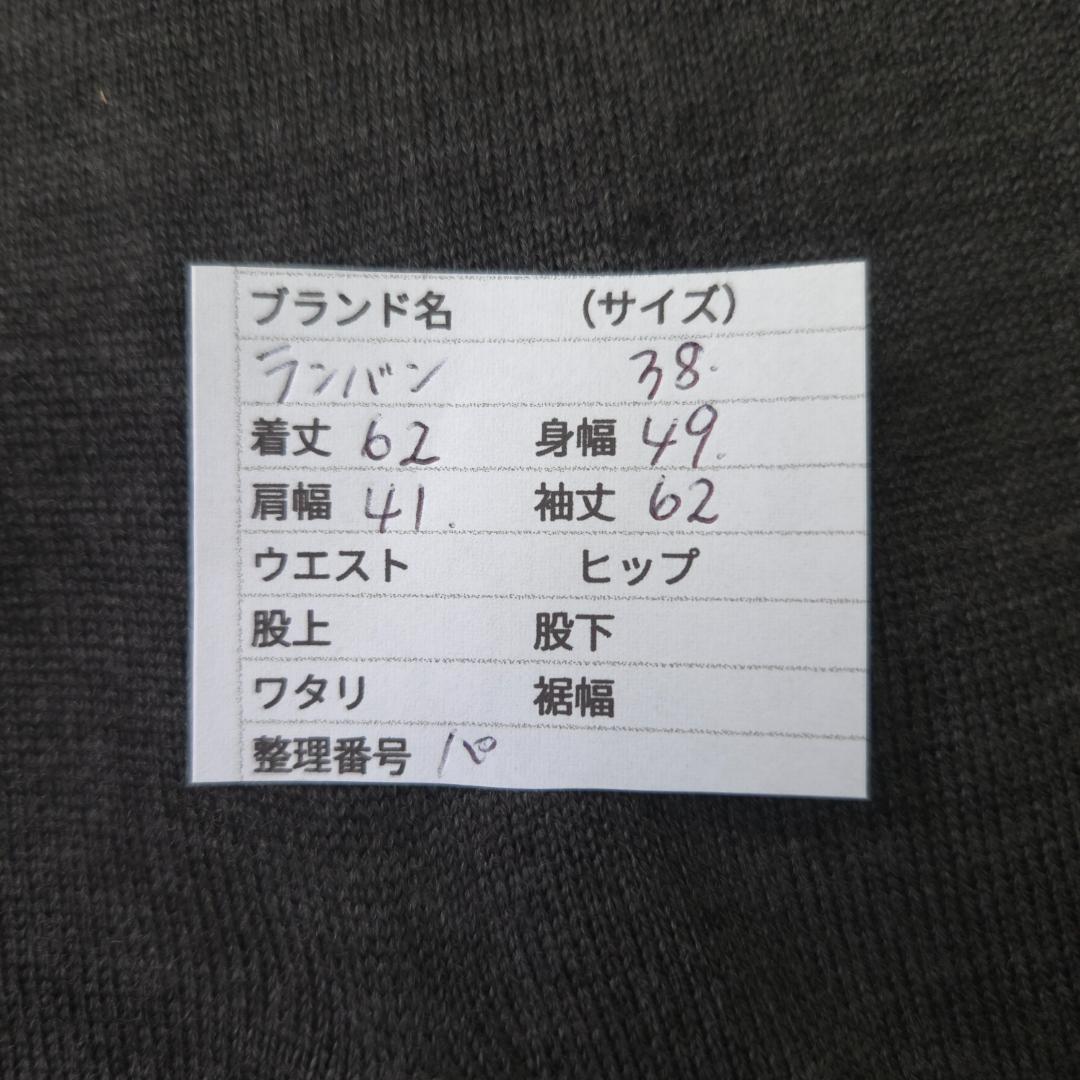 ブランド名 (サイズ)
ランバン 38.
着丈 62 身幅 49.
肩幅 41. 袖丈 62
ウエスト ヒップ
股上 股下
ワタリ 裾幅
整理番号